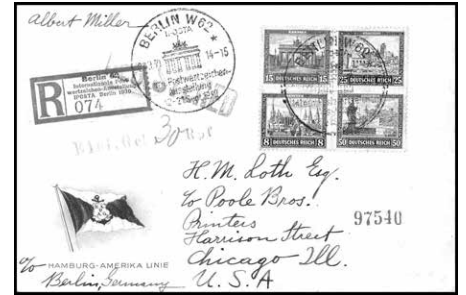 Albert Miller
BERLIN W62
IPOSTA
14-15
Postwertzeichen-
ausstellung
Berlin 62
Internationale
IPOSTA Berlin 1930
R
074
15 15
DEUTSCHES REICH
25 25
DEUTSCHES REICH
8 8
DEUTSCHES REICH
50 50
DEUTSCHES REICH
BERLIN W62
H. M. Loth Esq.
c/o Poole Bros.
Printers
Harrison Street
Chicago Ill.
U. S. A
97540
c/o HAMBURG-AMERIKA LINIE
Berlin, Germany